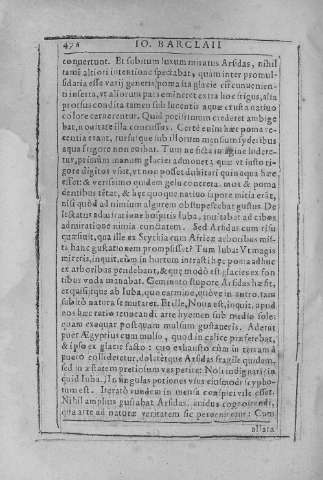 472 IO. BARCLAII
conuertunt. Et subitum luxum miratus Arsidas, nihil
tamē altiori intentione spectabat, quàm inter promul-
sidaria esse varij generis poma ita glacie circumuenien-
ti inserta, vt aliorum pars emineret extra hoc frigus, alia
prorsus condita tamen sub lucentis aquæ crusta natiuo
colore cernerentur. Quid potissimum crederet ambige
bat, nouitate illa concussus. Certè enim hæc poma re-
centia erant, rursusque sub illorum mensium syderibus
aqua frigore non coibat. Tum ne ficta in
tur, primùm manum glaciei admouet; quæ vt iusto ri-
gore digitos vssit, vt non posset dubitari quin aqua hæc
esset: & verissimo quidem gelu concreta. mox & poma
dentibus tētat, & hyc quoque natiuo sapore mitia erāt,
nisi quòd ad nimium algorem obstupescebat gustus. De
lectatus admiratione hospitis Iuba, inuitabat ad cibos
admiratione nimia cunctatem. Sed Arsidas cum risu
quæsiuit, qua ille ex Scythia cum Africæ arboribus mis-
ti hanc gustationem prompsisset? Tum Iuba: Vt magis
mireris, inquit, etiam in hortum irasti hęc poma adhuc
ex arboribus pendebant, & quę modò est glacies ex fon
tibus vnda manabat. Geminato stupore Arsidas hæsit,
exquisitque ab Iuba, quo carmine, quóve in antro tam
subitò natura se mutaret. Et ille, Noua est, inquit, apud
nos hæc ratio reuocandi arte hyemem sub medio sole:
quam exequar postquam multum gustaueris. Aderat
puer Ægyptius cum mulso, quod in calice præferebat,
& ipso ex glacie facto: quo exhausto cum in terram à
puero collideretur, dolētque Arsidas fragile quidem,
sed in æstatem pretiosum vas perire: Noli indignari; in
quid Iuba. In singulas potiones vsus eiusmodi scypho-
rum est. Iteratò eundem in mensa conspici vile esset.
Nihil amplius gustabat Arsidas, auidus cognoscendi,
qua arte ad naturæ veritatem sic peruenirent: Cum
allata